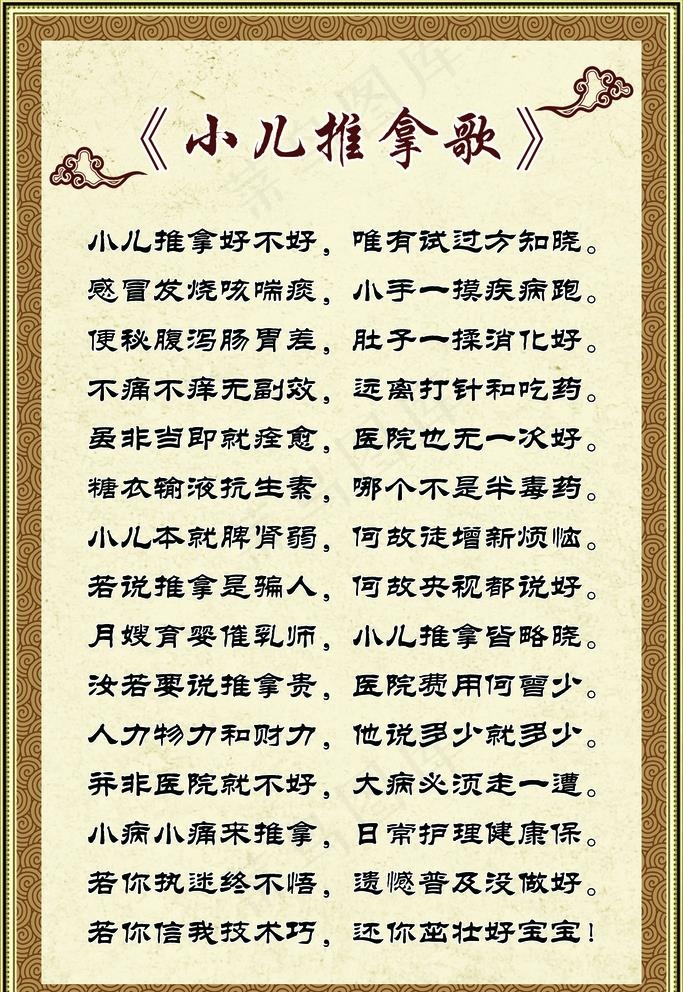 《小儿推拿歌》
小儿推拿好不好，唯有试过方知晓。
感冒发烧咳喘痰，小手一摸疾病跑。
便秘腹泻肠胃差，肚子一揉消化好。
不痛不痒无副效，远离打针和吃药。
虽非当即就痊愈，医院也无一次好。
糖衣输液抗生素，哪个不是半毒药。
小儿本就脾肾弱，何故徒增新烦恼。
若说推拿是骗人，何故央视都说好。
月嫂育婴催乳师，小儿推拿皆略晓。
汝若要说推拿贵，医院费用何曾少。
人力物力和财力，他说多少就多少。
并非医院就不好，大病必须走一遭。
小病小痛来推拿，日常护理健康保。
若你执迷终不悟，遗憾普及没做好。
若你信我技术巧，还你茁壮好宝宝！